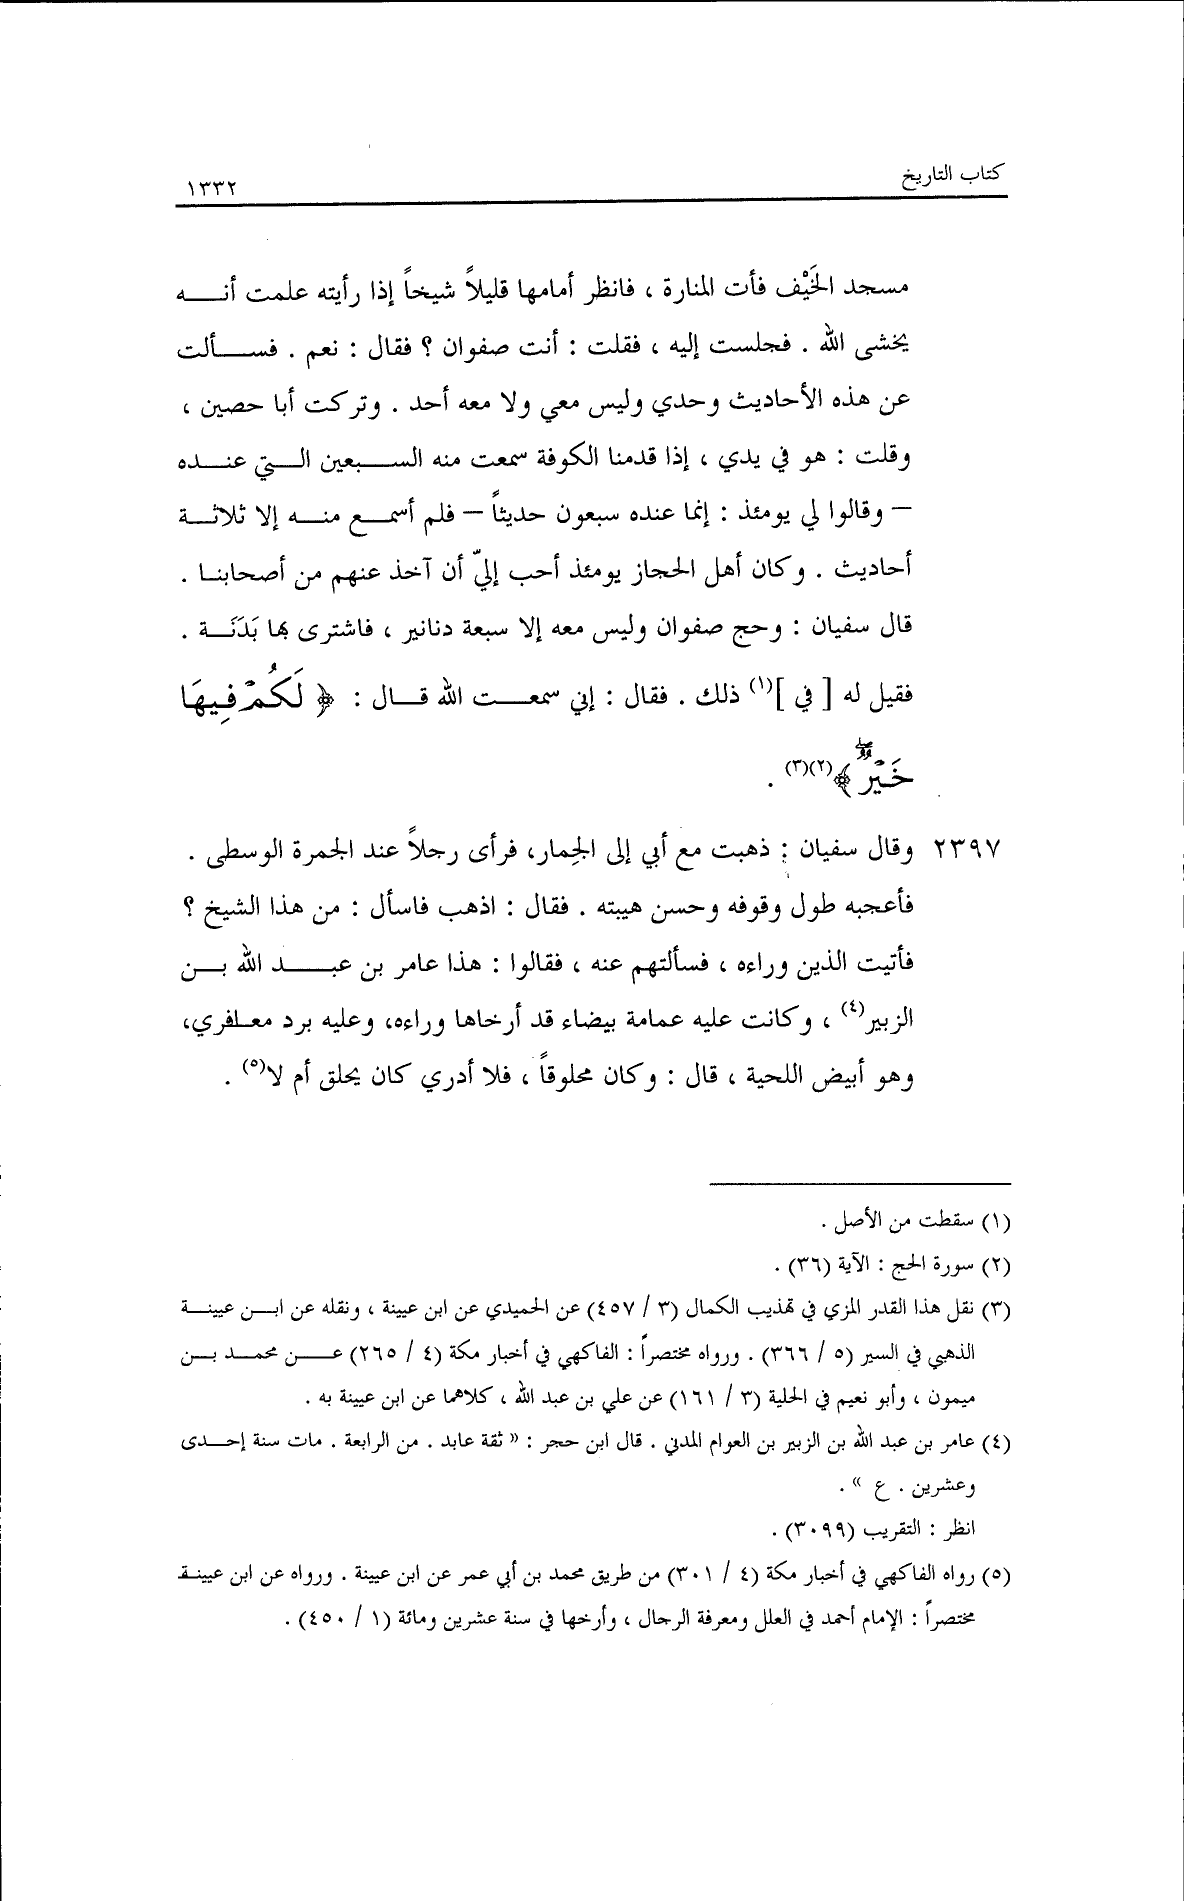 كتاب التاريخ
١٣٣٢
مسجد الخَيْف فأت المنارة ، فانظر أمامها قليلاً شيخاً إذا رأيته علمت أنه
يخشى الله . فجلست إليه ، فقلت : أنت صفوان ؟ فقال : نعم . فسألت
عن هذه الأحاديث وحدي وليس معي ولا معه أحد . وتركت أبا حصين ،
وقلت : هو في يدي ، إذا قدمنا الكوفة سمعت منه السبعين التي عنده
– وقالوا لي يومئذ : إنما عنده سبعون حديثاً – فلم أسمع منه إلا ثلاثة
أحاديث . وكان أهل الحجاز يومئذ أحب إليّ أن آخذ عنهم من أصحابنا .
قال سفيان : وحج صفوان وليس معه إلا سبعة دنانير ، فاشترى بها بَدَنَة .
فقيل له [ في ](١) ذلك . فقال : إني سمعت الله قال : ﴿ لَكُمْ فِيهَا
خَيْرٌ ۖ ﴾(٢)(٣) .
٢٣٩٧ وقال سفيان : ذهبت مع أبي إلى الجِمار، فرأى رجلاً عند الجمرة الوسطى .
فأعجبه طول وقوفه وحسن هيبته . فقال : اذهب فاسأل : من هذا الشيخ ؟
فأتيت الذين وراءه ، فسألتهم عنه ، فقالوا : هذا عامر بن عبد الله بن
الزبير(٤) ، وكانت عليه عمامة بيضاء قد أرخاها وراءه، وعليه برد معافري،
وهو أبيض اللحية ، قال : وكان محلوقاً ، فلا أدري كان يحلق أم لا(٥) .
(١) سقطت من الأصل .
(٢) سورة الحج : الآية (٣٦) .
(٣) نقل هذا القدر المزي في تهذيب الكمال (٣ / ٤٥٧) عن الحميدي عن ابن عيينة ، ونقله عن ابن عيينة
الذهبي في السير (٥ / ٣٦٦) . ورواه مختصراً : الفاكهي في أخبار مكة (٤ / ٢٦٥) عن محمد بن
ميمون ، وأبو نعيم في الحلية (٣ / ١٦١) عن علي بن عبد الله ، كلاهما عن ابن عيينة به .
(٤) عامر بن عبد الله بن الزبير بن العوام المدني . قال ابن حجر : « ثقة عابد . من الرابعة . مات سنة إحدى
وعشرين . ع » .
انظر : التقريب (٣٠٩٩) .
(٥) رواه الفاكهي في أخبار مكة (٤ / ٣٠١) من طريق محمد بن أبي عمر عن ابن عيينة . ورواه عن ابن عيينة
مختصراً : الإمام أحمد في العلل ومعرفة الرجال ، وأرخها في سنة عشرين ومائة (١ / ٤٥٠) .